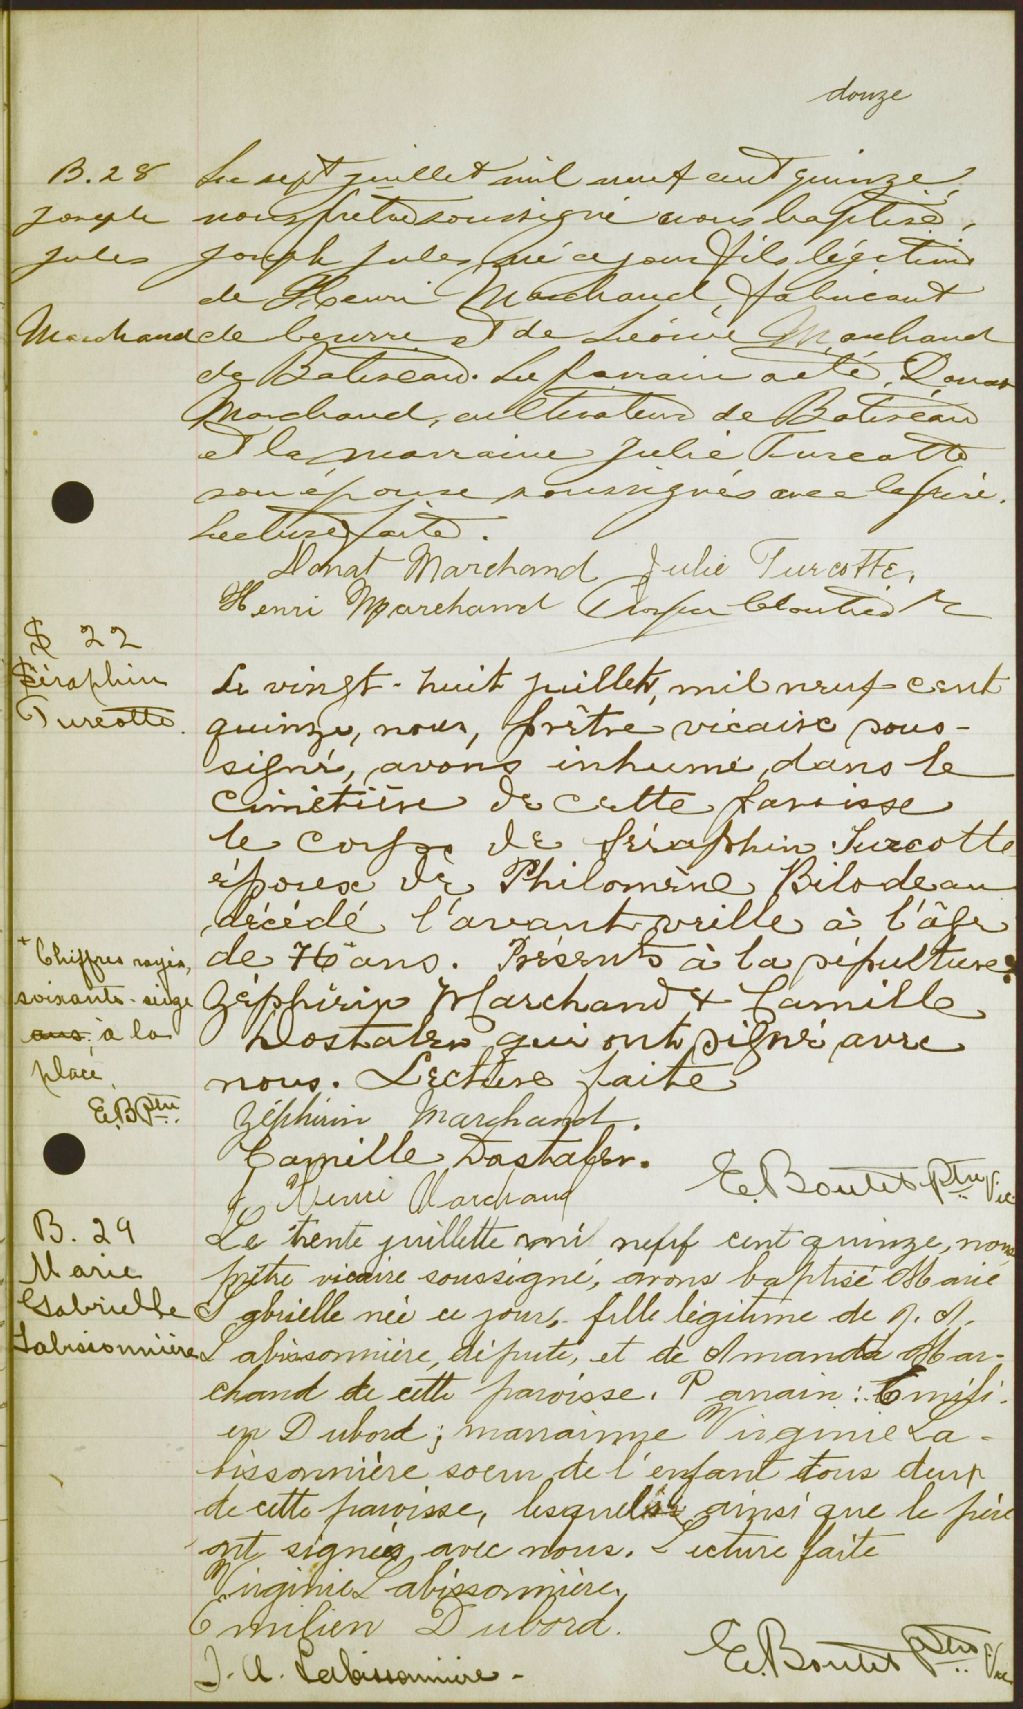 douze
B. 28
Joseph
Jules
Marchand
Le sept juillet mil neuf cent quinze,
nous prêtre soussigné avons baptisé,
Joseph Jules, né ce jour fils légitime
de Henri Marchand, fabricant
de beurre et de Léonie Marchand
de Batiscan. Le parrain a été, Donat
Marchand, cultivateur de Batiscan
et la marraine Julie Turcotte
son épouse soussignés avec le père.
Lecture faite.
Donat Marchand Julie Turcotte.
Henri Marchand Cloutier
S 22
Séraphin
Turcotte.
Le vingt-huit juillet, mil neuf cent
quinze, nous, prêtre vicaire sous-
signé, avons inhumé, dans le
cimetière de cette paroisse
le corps de Séraphin Turcotte
époux de Philomène Bilodeau
décédé l'avant-veille à l'âge
de 76 ans. Présents à la sépulture:
Zéphirin Marchand & Camille
Dostaler qui ont signé avec
nous. Lecture faite
+ Chiffres rayés,
soixante-seize
ans, à la
place.
E.B Ptre.
Zéphirin Marchand.
Camille Dostaler.
Henri Marchand
E. Boutet Ptre Vic
B. 29
Marie
Gabrielle
Labissonnière
Le trente juillette mil neuf cent quinze, nous
prêtre vicaire soussigné, avons baptisé Marie
Gabrielle née ce jour, fille légitime de J. A.
Labissonnière, député, et de Amanda Mar-
chand de cette paroisse. Parrain: Emili-
en Dubord; marraine Virginie La-
bissonnière soeur de l'enfant tous deux
de cette paroisse, lesquels ainsi que le père
ont signés avec nous. Lecture faite
Virginie Labissonnière,
Emilien Dubord.
J. A. Labissonnière -
E. Boutet Ptre Vic